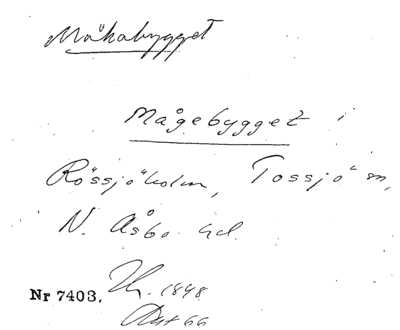 Måkabygget
Mågebygget i
Rössjöholm, Tossjö sn,
N. Åsbo hd.
Nr 7403. 1848.